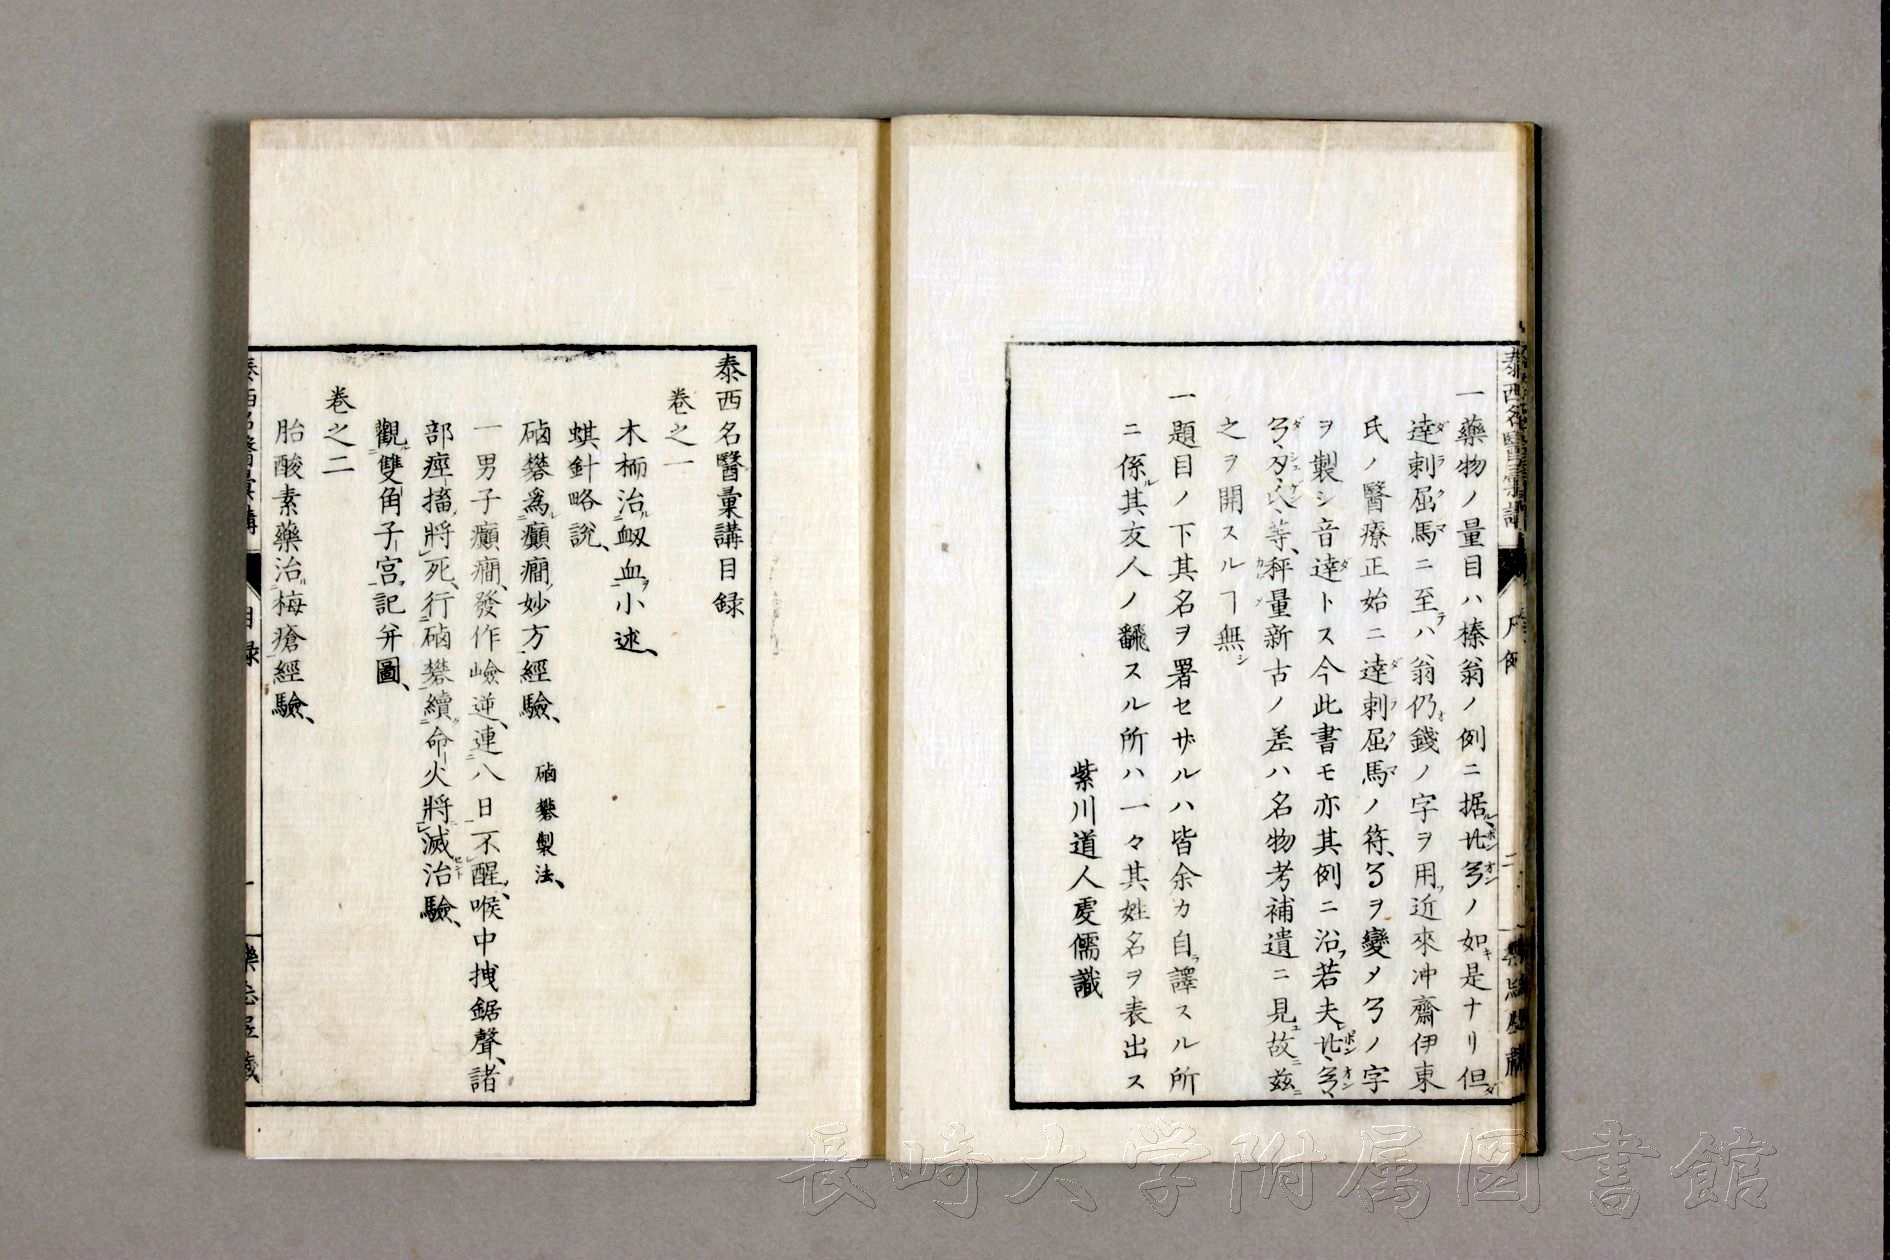 一藥物ノ量目ハ榛翁ノ例ニ据ル、ノ如キ是ナリ但
達剌屈馬ニ至ラハ翁仍錢ノ字ヲ用フ近來冲齋伊東
氏ノ醫療正始ニ達剌屈馬ノ符、ヲ變メノ字
ヲ製シ音達トス今此書モ亦其例ニ沿フ若夫
等、秤量新古ノ差ハ名物考補遺ニ見ユ故ニ茲ニ
之ヲ開スルヿ無シ
一題目ノ下其名ヲ署セザルハ皆余カ自ラ譯スル所
ニ係ル其友人ノ飜スル所ハ一々其姓名ヲ表出ス
紫川道人虔儒識
泰西名醫彙講
凡例
二
泰西名醫彙講目録
卷之一
木栭治衂血小述、
蜞針略說、
硇礬爲癲癇妙方經驗、 硇礬製法、
一男子癲癇、發作嶮逆、連八日不醒、喉中拽鋸聲、諸
部痙搐將死、行硇礬續命火將滅治驗、
觀雙角子宮記幷圖、
卷之二
胎酸素藥治梅瘡經驗、
泰西名醫彙講
目録
一
長崎大学附属図書館